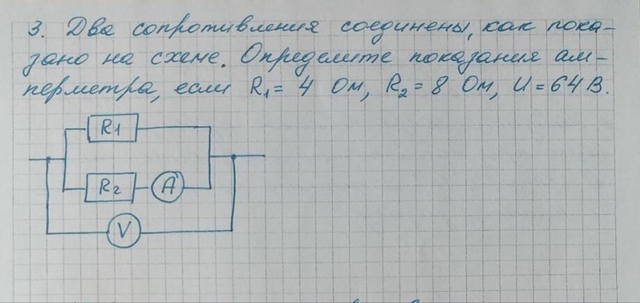 3. Два сопротивления соединены, как пока-
зано на схеме. Определите показания ам-
перметра, если R₁ = 4 Ом, R₂ = 8 Ом, U = 64 В.
R1
R2 A
V